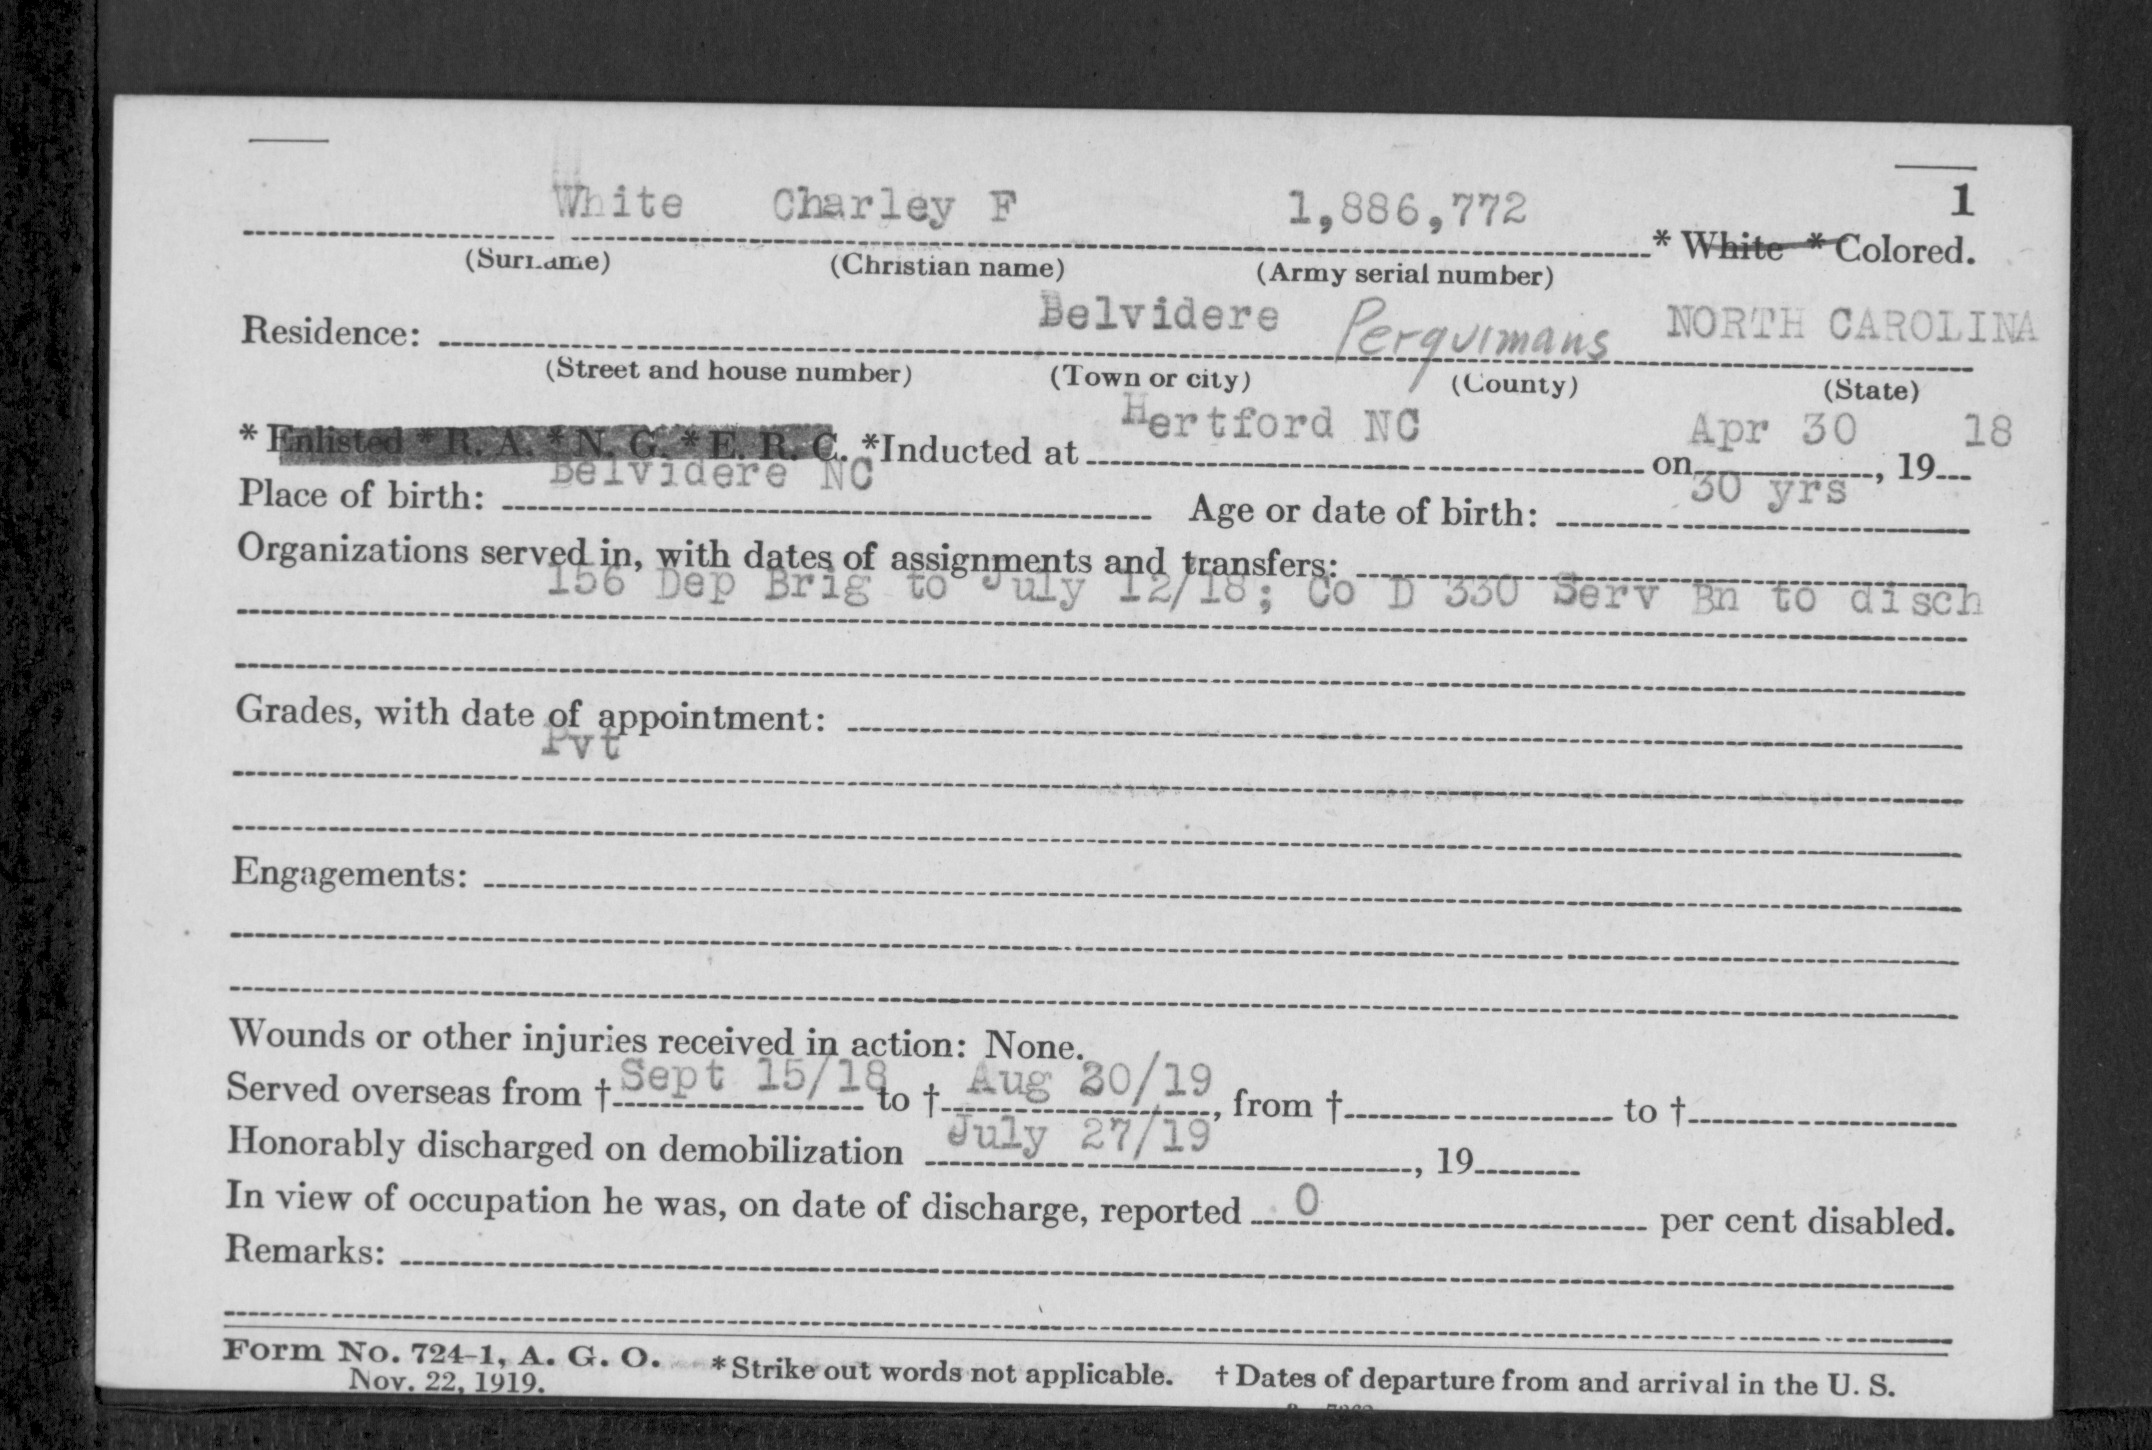 1
White Charley F 1,886,772 * White * Colored.
(Surname) (Christian name) (Army serial number)
Residence: Belvidere Perquimans NORTH CAROLINA
(Street and house number) (Town or city) (County) (State)
* Enlisted * R. A. * N. G. * E. R. C. *Inducted at Hertford NC on Apr 30, 19 18
Place of birth: Belvidere NC Age or date of birth: 30 yrs
Organizations served in, with dates of assignments and transfers:
156 Dep Brig to July 12/18; Co D 330 Serv Bn to disch
Grades, with date of appointment:
Pvt
Engagements:
Wounds or other injuries received in action: None.
Served overseas from † Sept 15/18 to † Aug 20/19, from † to †
Honorably discharged on demobilization July 27/19, 19
In view of occupation he was, on date of discharge, reported 0 per cent disabled.
Remarks:
Form No. 724-1, A. G. O. * Strike out words not applicable. † Dates of departure from and arrival in the U. S.
Nov. 22, 1919.